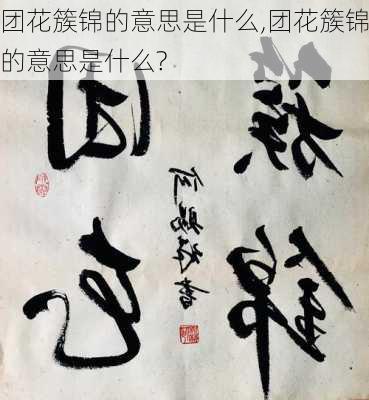 团花簇锦的意思是什么,团花簇锦
的意思是什么?
团花
簇锦